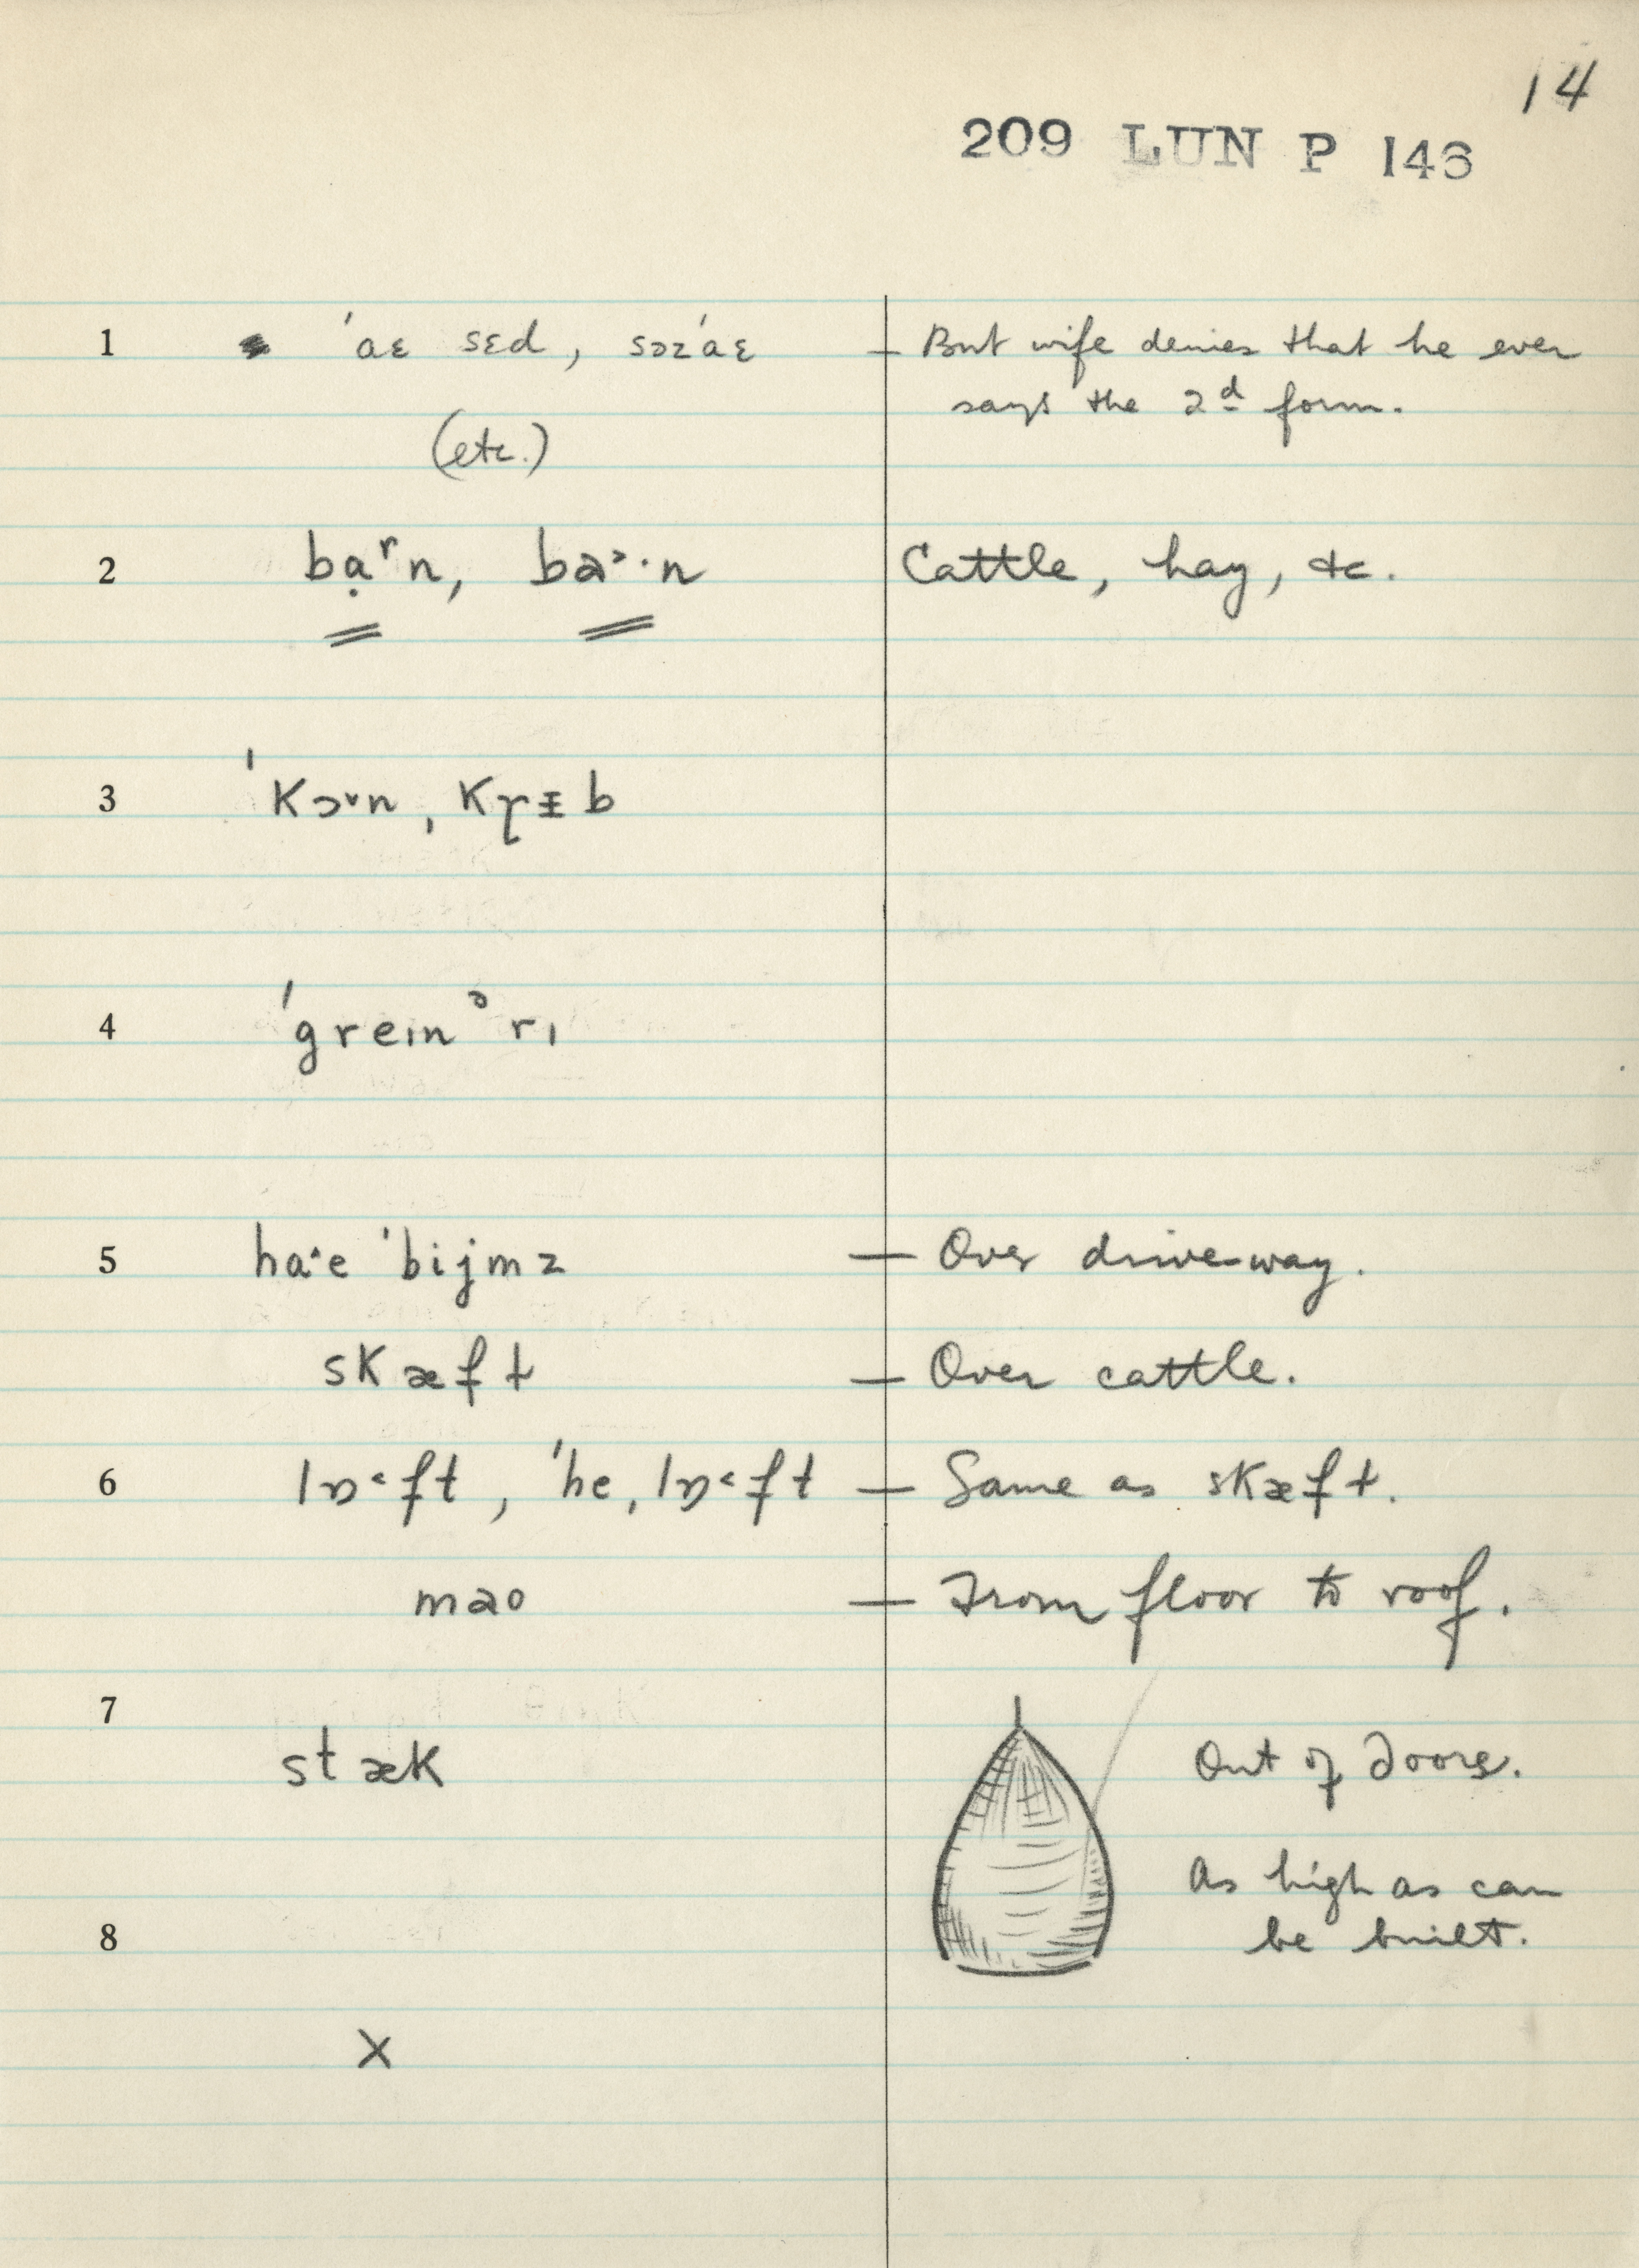 14
209 LUN P 143
1 ˈaɛ sɛd, səzˈaɛ — But wife denies that he ever
says the 2d form.
(etc.)
2 bạʳn, ba˃·n Cattle, hay, &c.
3 ˈkɔ˅n, kɽɪb
4 ˈgreɪnᵊrɪ
5 ha˄e ˈbijmz — Over drive-way.
skæft — Over cattle.
6 lɒ˂ft, ˈheˌlɒ˂ft — Same as skæft.
mao — From floor to roof.
7
stæk Out of doors.
As high as can
8 be built.
X